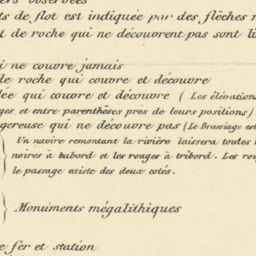 ts de flot est indiquée par des flèches
t de roche qui ne découvrent pas sont
i ne couvre jamais
de roche qui couvre et découvre
ée qui couvre et découvre (Les élévations
ges, et entre parenthèses près de leurs positions)
gereuse qui ne découvre pas (Le Brassiage est
Un navire remontant la rivière laissera toutes
noires à babord et les rouges à tribord. Les
le passage existe des deux cotés.
Monuments mégalithiques
e fer et station